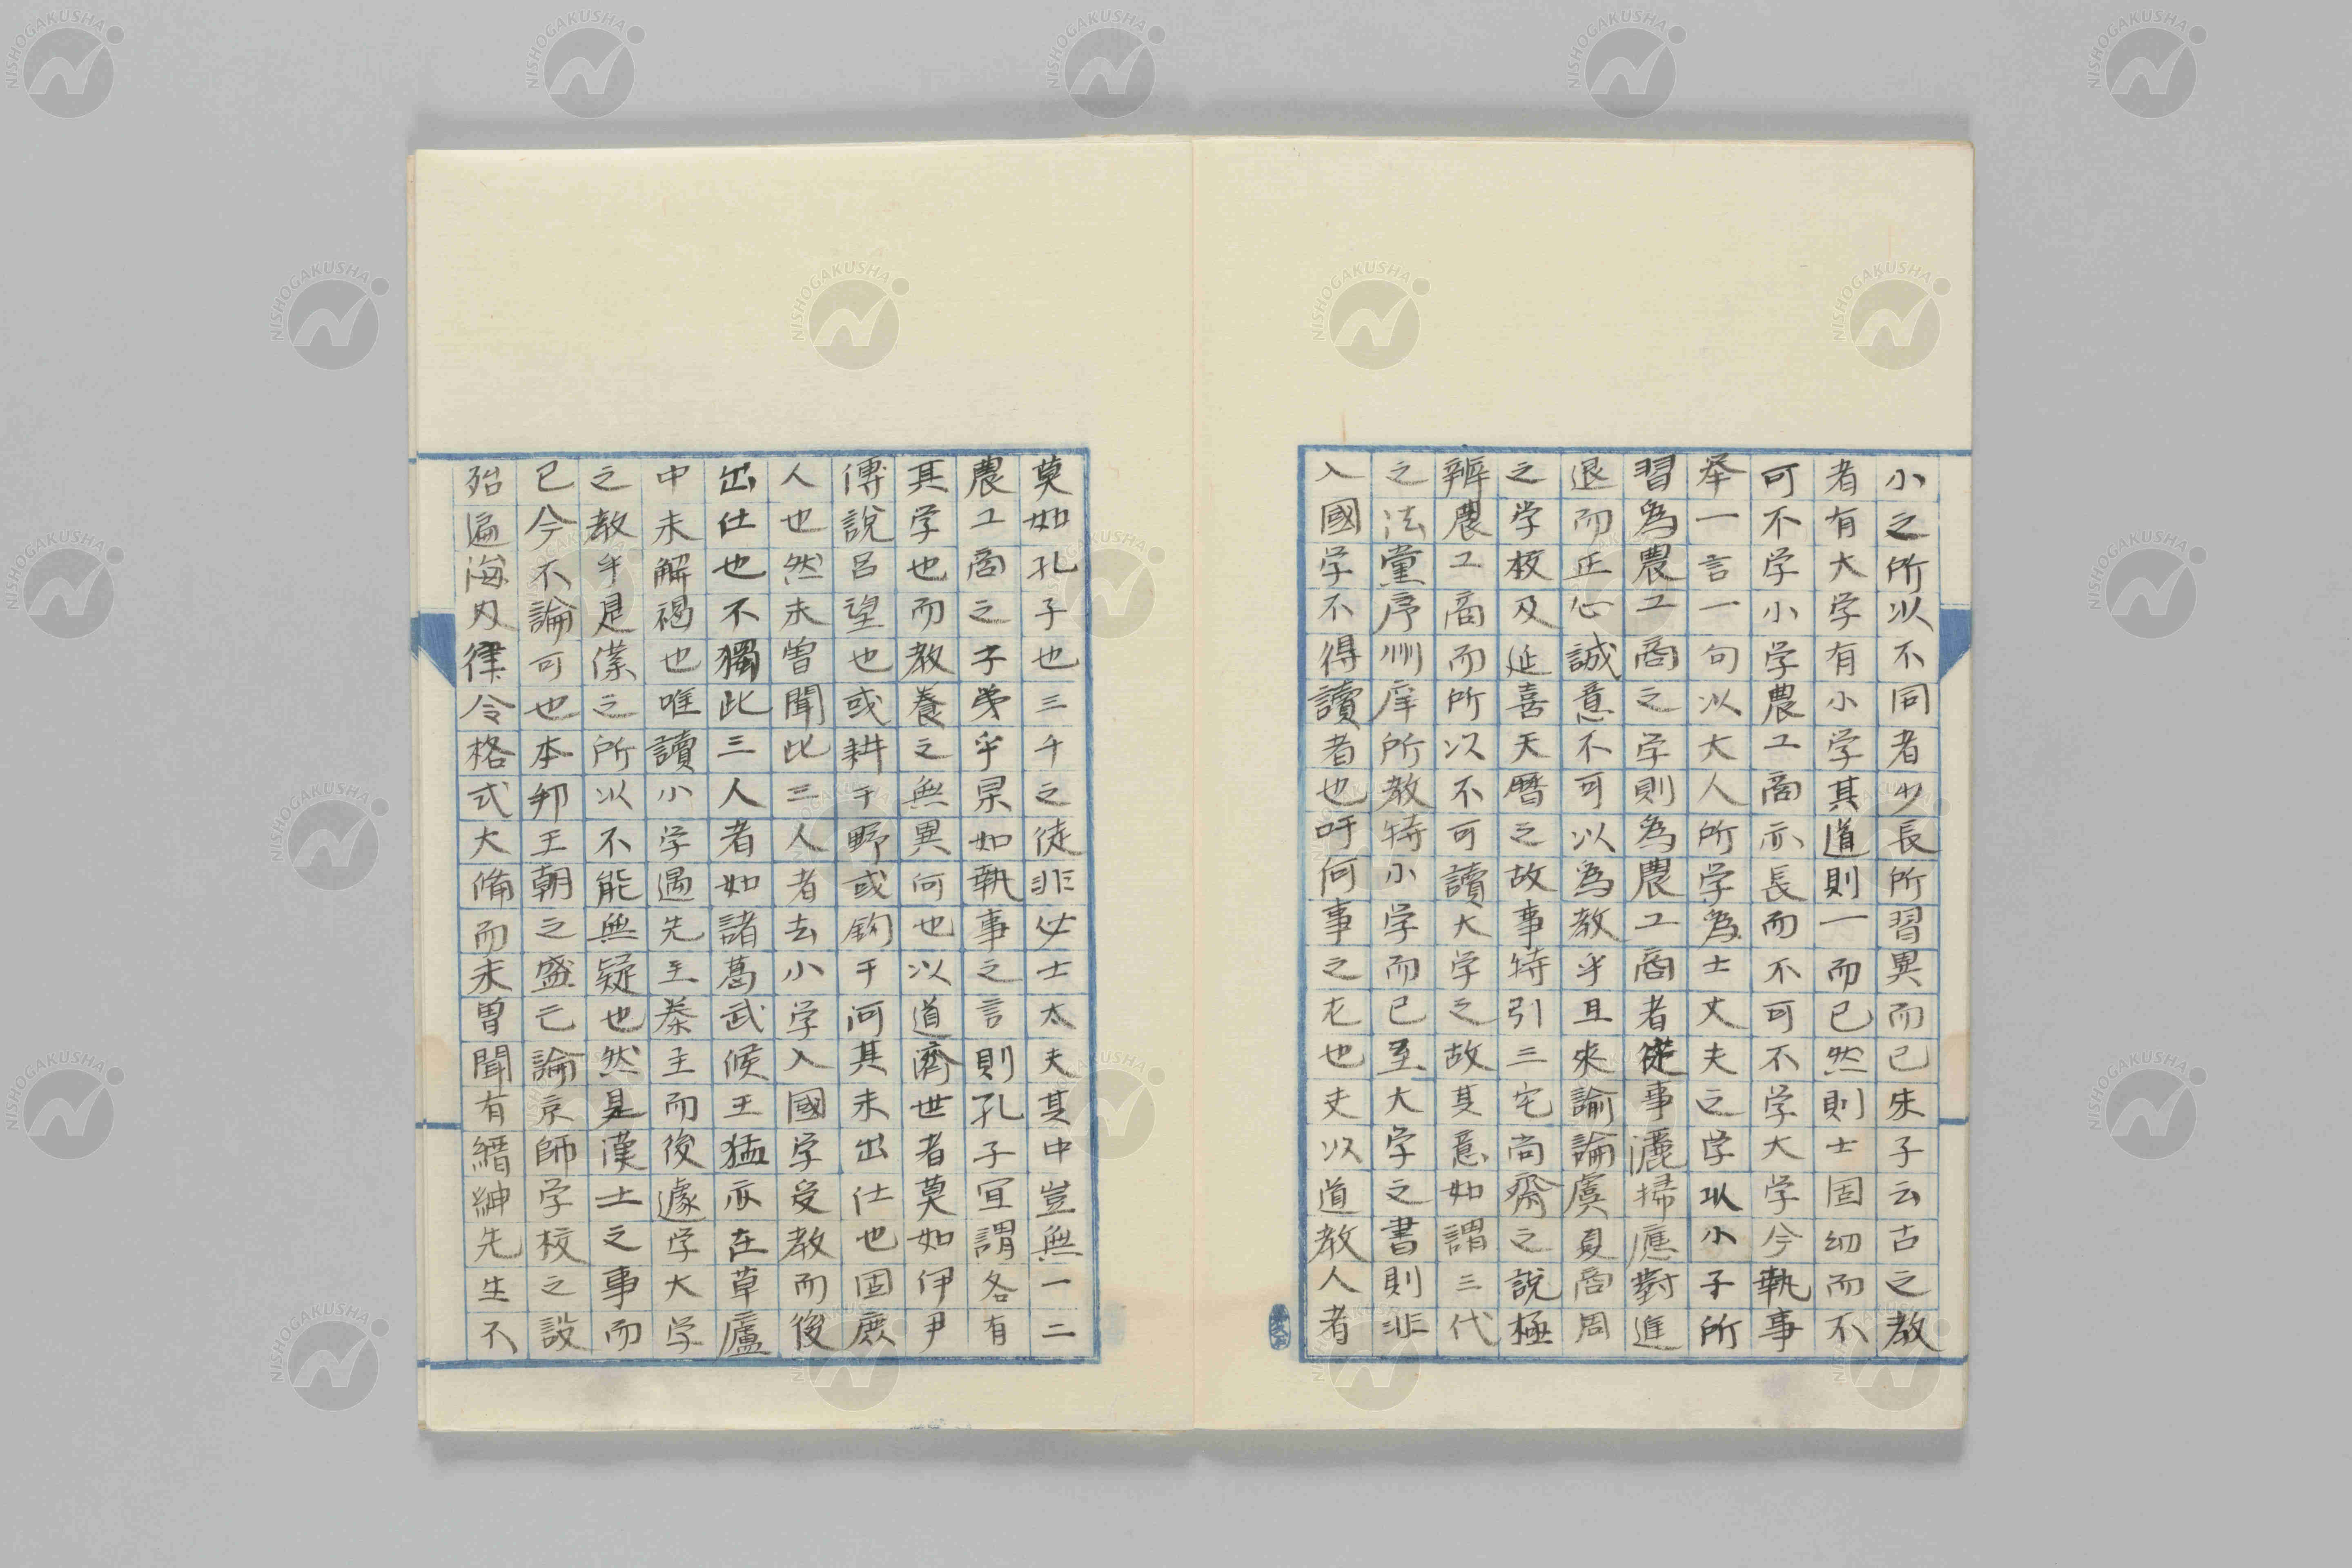 小之所以不同者少長所習異而已朱子云古之教
者有大学有小学其道則一而已然則士固幼而不
可不学小学農工商亦長而不可不学大学今執事
举一言一句以大人所学為士丈夫之学以小子所
習為農工商之学則為農工商者従事灑掃應對進
退而正心誠意不可以為教乎且來諭論虞夏商周
之学校及延喜天暦之故事特引三宅尚齋之說極
辨農工商而所以不可讀大学之故其意如謂三代
之法黨序州庠所教特小学而已至大学之書則非
入國学不得讀者也吁何事之左也夫以道教人者
莫如孔子也三千之徒非必士太夫其中豈無一二
農工商之子弟乎果如執事之言則孔子宜謂各有
其学也而教養之無異何也以道濟世者莫如伊尹
傅說呂望也或耕于野或釣于河其未出仕也固庶
人也然未曽聞此三人者去小学入國学受教而後
出仕也不獨此三人者如諸葛武候王猛亦在草廬
中未解褐也唯讀小学遇先主秦主而後遽学大学
之教乎是僕之所以不能無疑也然是漢土之事而
已今不論可也本邦王朝之盛已論京師学校之設
殆遍海内律令格式大備而未曽聞有縉紳先生不
NISHOGAKUSHA